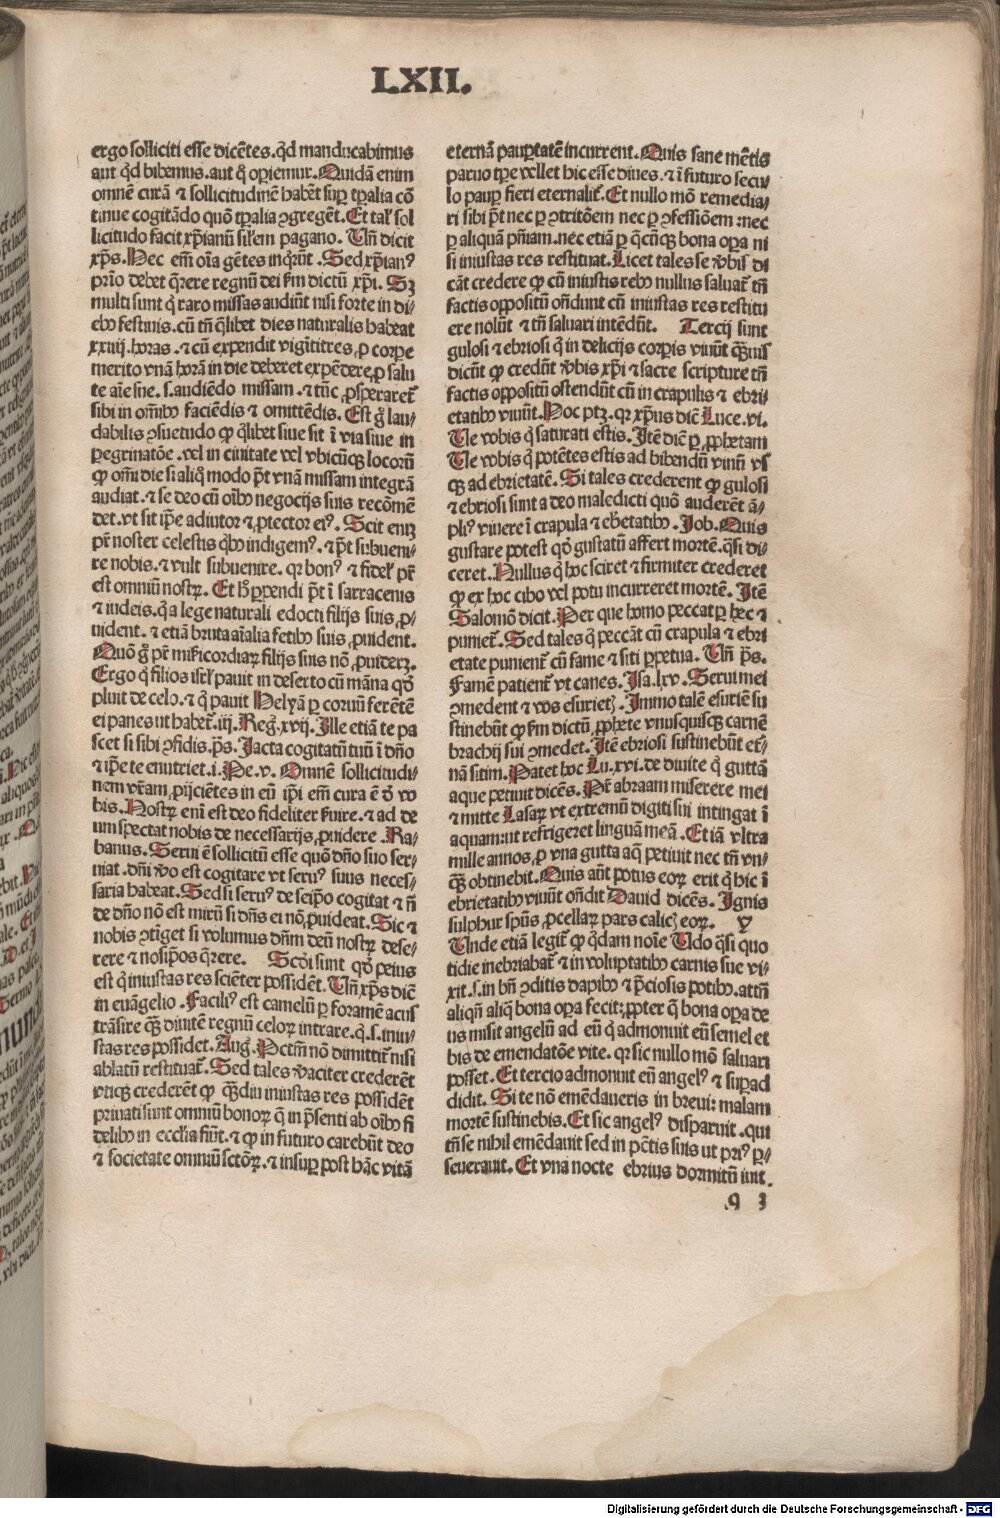 LXII.
ergo solliciti esse dicẽtes. qd manducabimus
aut qd bibemus. aut q̊ opiemur. Quidã enim
omnẽ curã ⁊ sollicitudinẽ habẽt suꝑ tꝑalia cõ
tinue cogitãdo quõ tꝑalia ꝯgregẽt. Et tał sol
licitudo facit xp̃ianũ siłem pagano. Vñ dicit
xp̃s. Hec em̃ oĩa gẽtes inq̃rũt. Sed xp̃ianꝰ
prĩo debet q̃rere regnũ dei ẜm dictũ xp̃i. Sꝫ
multi sunt q̇ raro missas audiũt nisi forte in di/
ebꝰ festiuis. cũ tñ q̇libet dies naturalis habeat
xxiiij. horas. ⁊ cũ expendit vigĩtitres ꝓ corpe
merito vnã horã in die deberet expẽdere ꝓ salu
te aĩe sue. s. audiẽdo missam. ⁊ tũc ꝓsperaret̃
sibi in om̃ibꝰ faciẽdis ⁊ omittẽdis. Est g̊ lau/
dabilis ꝯsuetudo ꝙ q̇libet siue sit ĩ via siue in
ꝑegrinatõe. vel in ciuitate vel vbicũqꝫ locorũ
ꝙ om̃i die si aliq̊ modo põt vnã missam integrã
audiat. ⁊ se deo cũ oĩbꝰ negocijs suis recõmẽ
det. vt sit ip̃e adiutor ⁊ ꝓtector eiꝰ. Scit enĩ
pr̃ noster celestis qbꝰ indigemꝰ. ⁊ põt subueni/
re nobis. ⁊ vult subuenire. qr bonꝰ ⁊ fideł pr̃
est omniũ nostrꝝ. Et hõ ꝑpendi põt ĩ sarracenis
⁊ iudeis. q̇ a lege naturali edocti filijs suis ꝓ/
uident. ⁊ etiã bruta aĩalia fetibꝰ suis ꝓuident.
Quõ g̊ pr̃ mĩcordiaꝝ filijs suis nõ ꝓuideret.
Ergo q̇ filios isrł pauit in deserto cũ mãna qď
pluit de celo. ⁊ q̇ pauit Helyã ꝑ coruũ ferẽtẽ
ei panes vt habet̃. iij. Reg̃. xvij. Ille etiã te pa
scet si sibi ꝯfidis. p̃s. Iacta cogitatũ tuũ ĩ dño
⁊ ip̃e te enutriet. i. Pe. v. Omnẽ sollicitudi/
nem vr̃am ꝓijciẽtes in eũ ip̃i em̃ cura ẽ đ vo
bis. Nostrꝝ eni est deo fideliter ẜuire. ⁊ ad de
um spectat nobis de necessarijs ꝓuidere. Ra/
banus. Serui ẽ sollicitũ esse quõ dño suo ser/
uiat. dñi vo est cogitare vt seruꝰ suus neces/
saria habeat. Sed si seruꝰ de seip̃o cogitat ⁊ ñ
de dño nõ est mirũ si dñs ei nõ ꝓuideat. Sic ⁊
nobis ꝯtĩget si volumus dñm deũ nostrꝝ dese/
rere ⁊ nosip̃os q̃rere. Scďi sunt qď peius
est q̇ iniustas res sciẽter possidẽt. Vñ xp̃s dicit
in euãgelio. Faciliꝰ est camelũ ꝑ foramẽ acus
trãsire qꝫ diuitẽ regnũ celoꝝ intrare. q̇. s. iniu/
stas res possidet. Aug̃. Pctm̃ nõ dimittit̃ nisi
ablatũ restituat̃. Sed tales ṽaciter crederẽt
vtiqꝫ crederẽt ꝙ qꝫdiu iniustas res possidẽt
priuati sunt omniũ bonoꝝ q̃ in p̃senti ab oĩbꝰ fi
delibꝰ in ecclia fiũt. ⁊ ꝙ in futuro carebũt deo
⁊ societate omniũ sctõꝝ. ⁊ insuꝑ post hãc vitã
eternã pauꝑtatẽ incurrent. Quis sane mẽtis
paruo tꝑe vellet hic esse diues. ⁊ ĩ futuro secu/
lo pauꝑ fieri eternalit̃. Et nullo mõ remedia/
ri sibi põt nec ꝑ ꝯtritõem nec ꝑ ꝯfessiõem: nec
ꝑ aliquã pñiam. nec etiã ꝑ q̃cũqꝫ bona oꝑa ni
si iniustas res restituat. Licet tales se ṽbis di
cãt credere ꝙ cũ iniustis rebꝰ nullus saluat̃ tñ
factis oppositũ oñdunt cũ iniustas res restitu
ere nolũt ⁊ tñ saluari intẽdũt. Tercij sunt
gulosi ⁊ ebriosi q̇ in delicijs corꝑis viuũt qꝫuis
dicũt ꝙ credũt ṽbis xp̃i ⁊ sacre scripture tñ
factis oppositũ ostendũt cũ in crapulis ⁊ ebri/
etatibꝰ viuũt. Hoc ptꝫ. qꝛ xp̃us dicit Luce. vi.
Ve vobis q̇ saturati estis. Itẽ dicit ꝑ ꝓphetam
Ve vobis q̇ potẽtes estis ad bibendũ vinũ vs
qꝫ ad ebrietatẽ. Si tales crederent ꝙ gulosi
⁊ ebriosi sunt a deo maledicti quõ auderẽt ã/
pliꝰ viuere ĩ crapula ⁊ ebrietatibꝰ. Iob. Quis
gustare potest qď gustatũ affert mortẽ. q̃si di/
ceret. Nullus q̇ hoc sciret ⁊ firmiter crederet
ꝙ ex hoc cibo vel potu incurreret mortẽ. Itẽ
Salomõ dicit. Per que homo peccat ꝑ hec ⁊
puniet̃. Sed tales q̇ peccãt cũ crapula ⁊ ebri
etate punient̃ cũ fame ⁊ siti ꝑpetua. Vñ p̃s.
Famẽ patient̃ vt canes. Isa. lxv. Serui mei
ꝯmedent ⁊ vos esurietꝭ. Immo talẽ esuriẽ su
stinebũt ꝙ ẜm dictũ ꝓphete vnusquisqꝫ carnẽ
brachij sui ꝯmedet. Itẽ ebriosi sustinebũt et̃/
nã sitim. Patet hoc Lu. xvi. de diuite q̇ guttã
aque petiuit dicẽs. Pr̃ abraam miserere mei
⁊ mitte Lasaꝝ vt extremũ digiti sui intingat ĩ
aquam: vt refrigeret linguã meã. Et iã vltra
mille annos ꝓ vna gutta aq̃ petiuit nec tñ vn/
qꝫ obtinebit. Quis aũt potus eoꝝ erit q̇ hic ĩ
ebrietatibꝰ viuũt oñdit Dauid dicẽs. Ignis
sulphur spũs ꝓcellaꝝ pars calicꝭ eoꝝ. y
Vnde etiã legit̃ ꝙ q̇dam noĩe Vdo q̃si quo
tidie inebriabat̃ ⁊ in voluptatibꝰ carnis sue vi/
xit. s. in bñ ꝯditis dapibꝰ ⁊ p̃ciosis potibꝰ. attñ
aliqñ aliq̃ bona oꝑa fecit: ꝓpter q̃ bona oꝑa de
us misit angelũ ad eũ q̇ admonuit eũ semel et
bis de emendatõe vite. qꝛ sic nullo mõ saluari
posset. Et tercio admonuit eũ angelꝰ ⁊ suꝑad
didit. Si te nõ emẽdaueris in breui: malam
mortẽ sustinebis. Et sic angelꝰ disparuit. qui
tñ se nihil emẽdauit sed in pctis suis vt priꝰ ꝑ/
seuerauit. Et vna nocte ebrius dormitũ iuit.
q 3
Digitalisierung gefördert durch die Deutsche Forschungsgemeinschaft - DFG